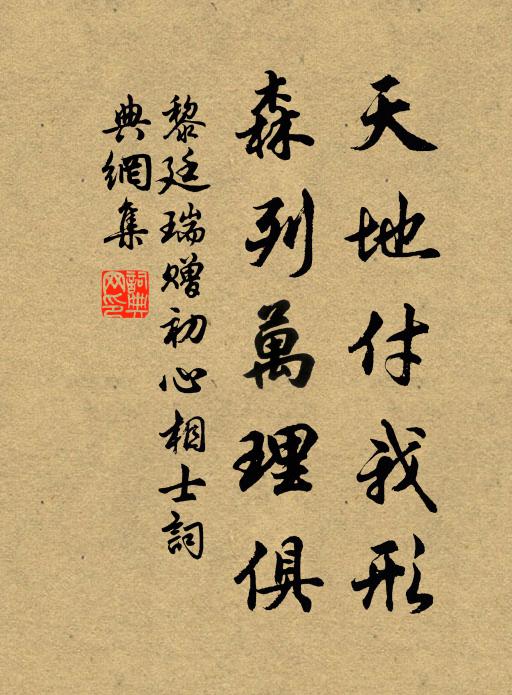 天地付我形
森列萬理俱
黎廷瑞贈初心相士詞
典網集
詞典網印